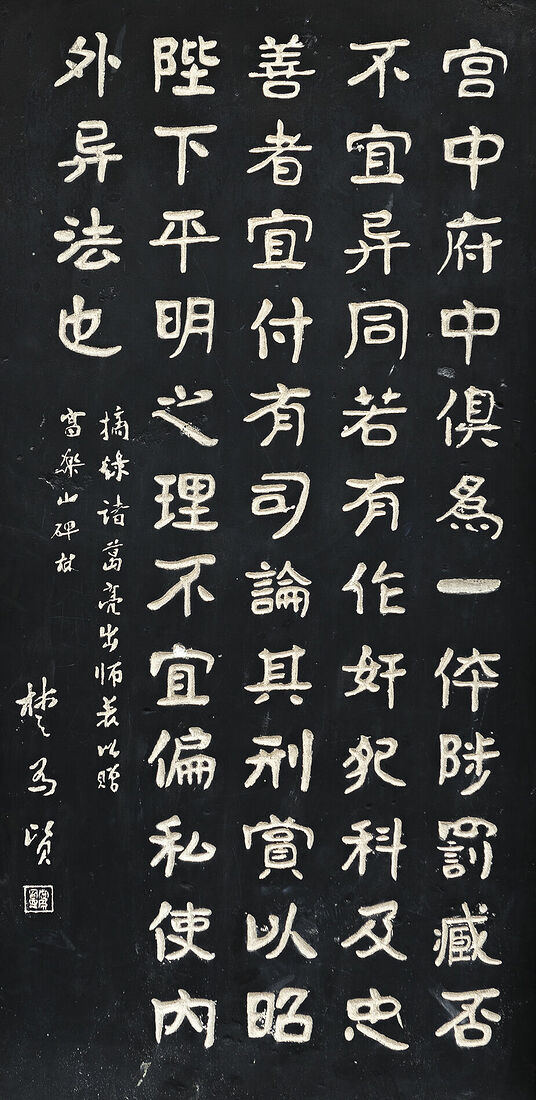 宫中府中俱為一体陟罰臧否
不宜异同若有作奸犯科及忠
善者宜付有司論其刑賞以昭
陛下平明之理不宜偏私使内
外异法也
摘録諸葛亮出师表以赠
富樂山碑林